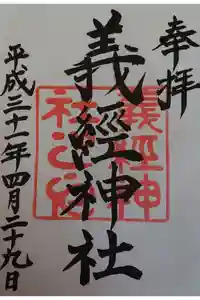 奉拝
義經神社
平成三十一年四月二十九日
義經神
社之印